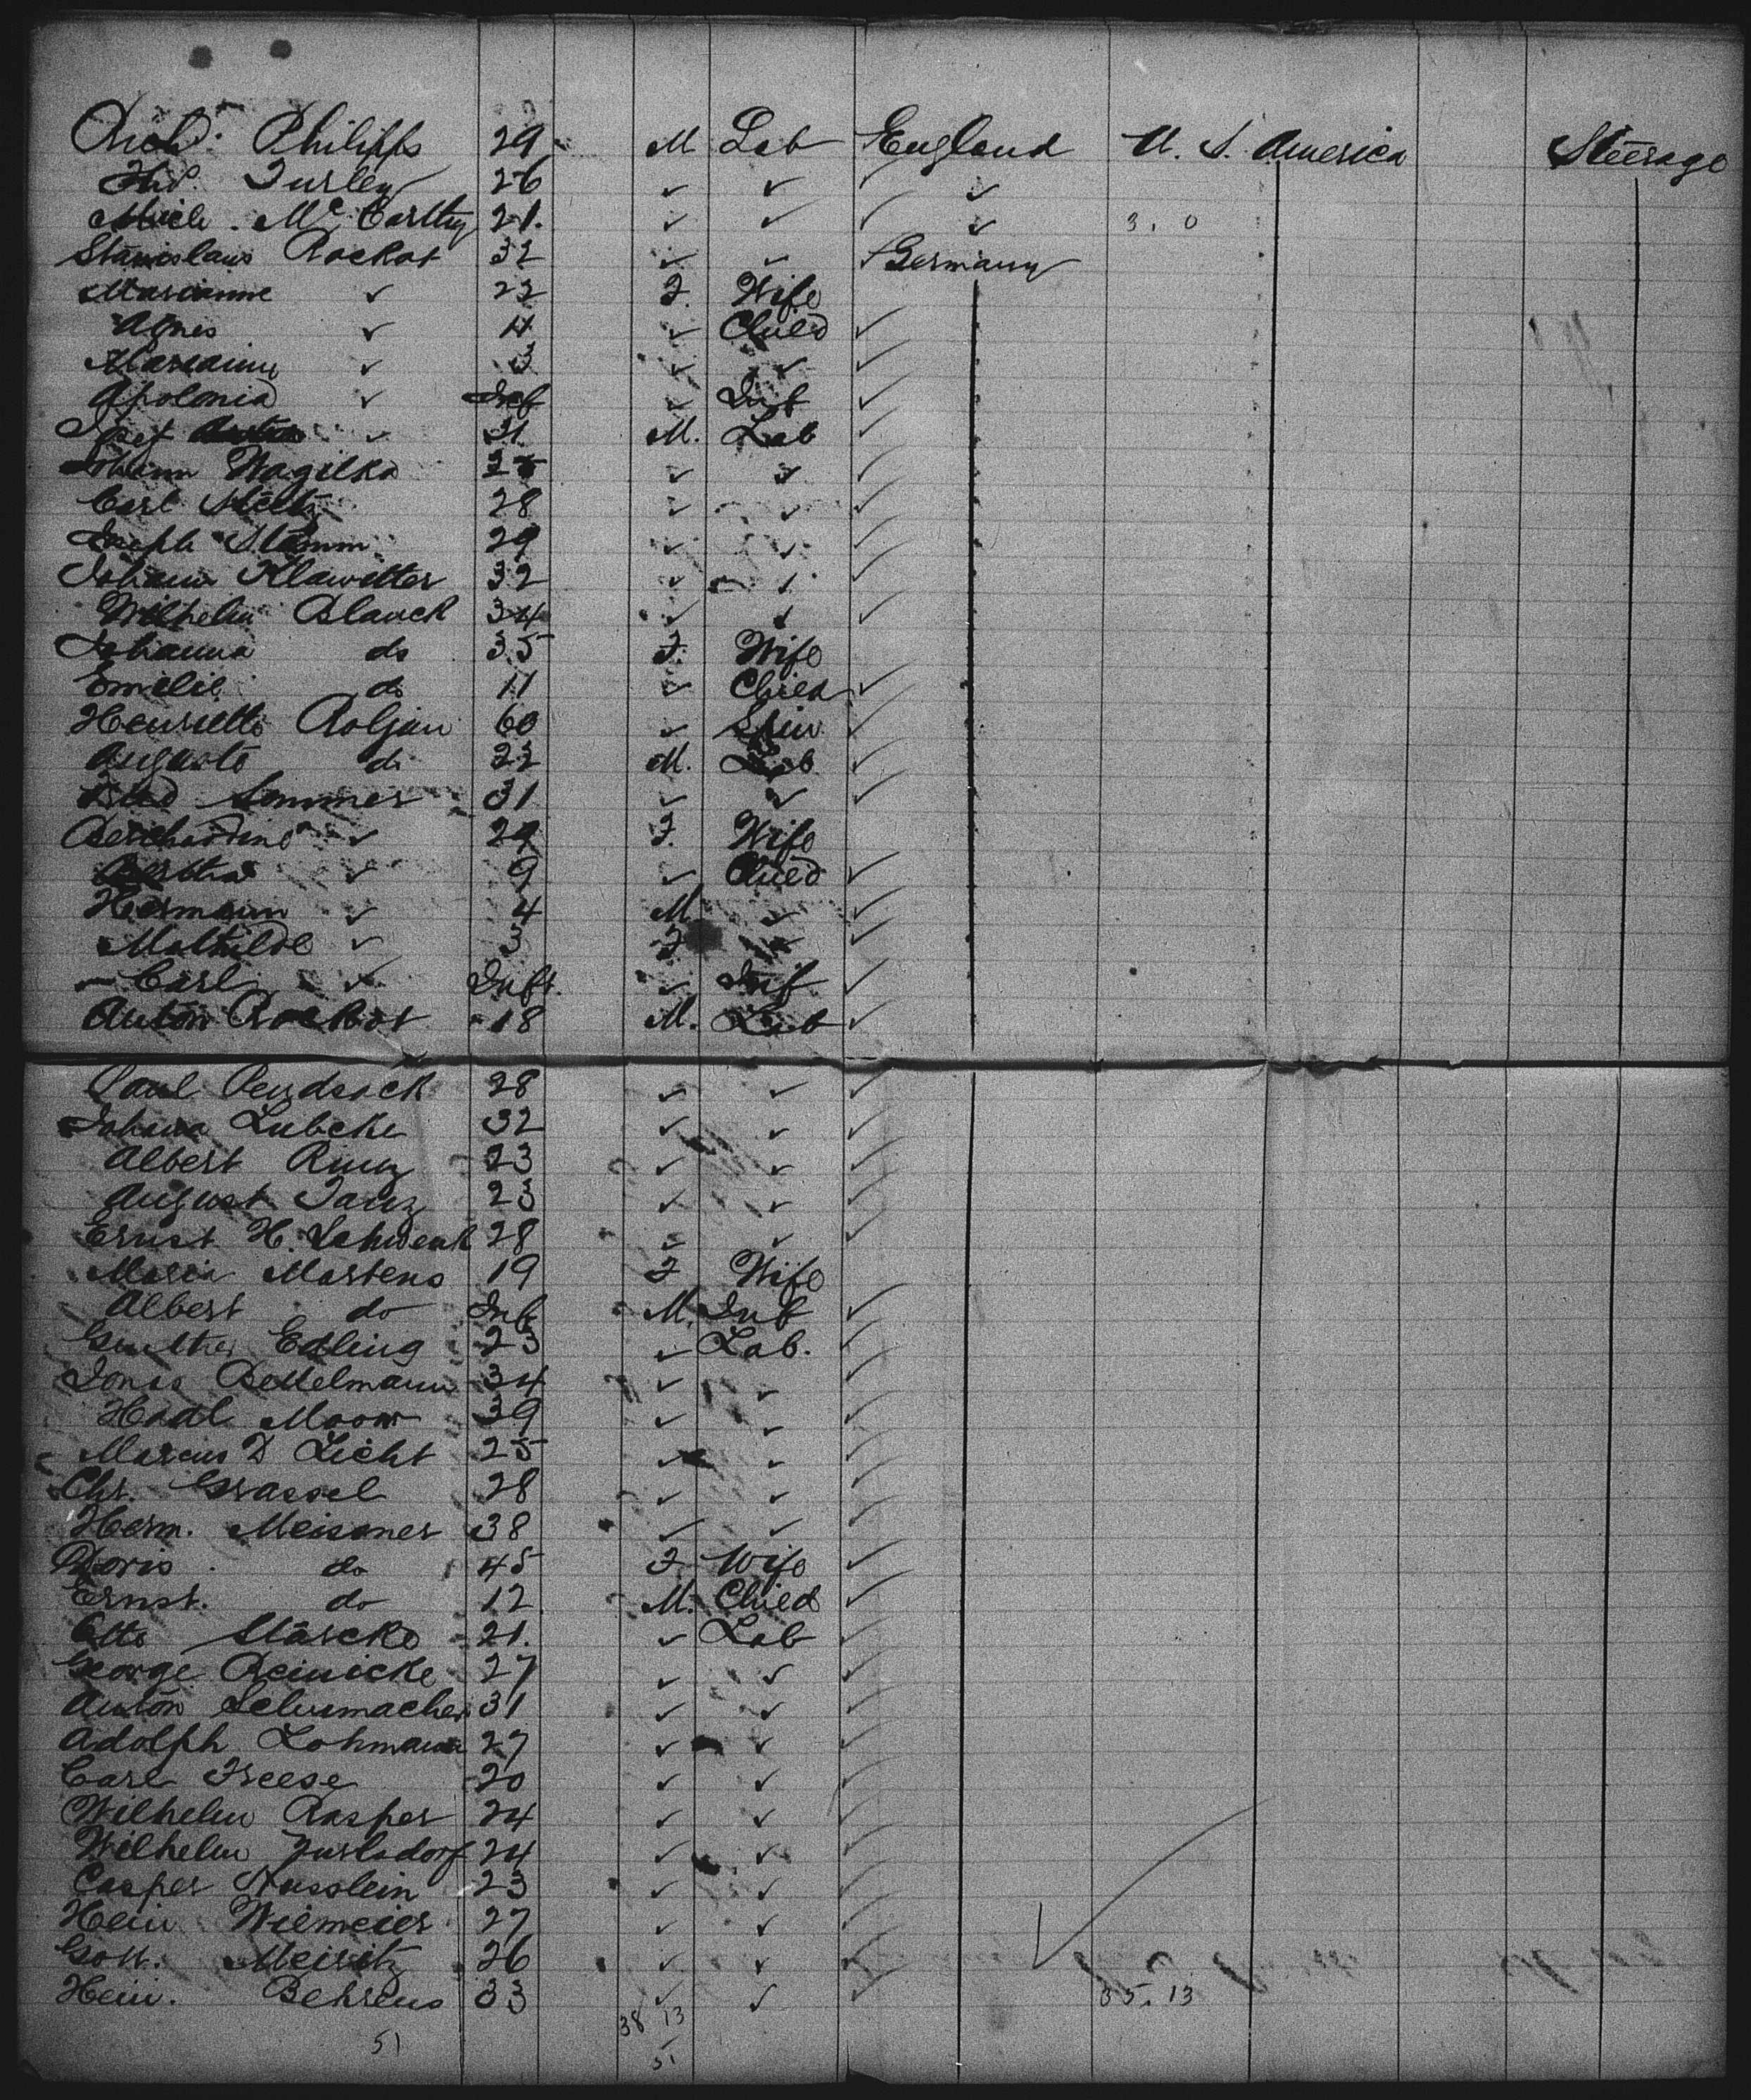 Richd. Philipps 29 M Lab England U. S. America Steerage
Thos. Turley 26 ✓ ✓ ✓ ✓
Mich. McCarthy 21. ✓ ✓ ✓ ✓ 3. 0
Stanislaus Rockot 32 ✓ ✓ Germany
Marianne ✓ 22 F. Wife
Agnes ✓ 4 ✓ Child ✓
Marianne ✓ 3 ✓ ✓ ✓
Apolonia ✓ Inf ✓ Inf ✓
Josef ✓ 31 M. Lab ✓
Johann Wagilka ✓ ✓ ✓
Carl 28 ✓ ✓ ✓
Joseph Stamm 29 ✓ ✓ ✓
Johann Klawitter 32 ✓ ✓ ✓
Wilhelm Blanck 34 ✓ ✓ ✓
Johanna do 35 F. Wife
Emilie do 11 ✓ Child ✓
Henriette Roljan 60 ✓ Spin ✓
Auguste do 22 M. Lab ✓
Sommer 31 ✓ ✓ ✓
✓ 29 F. Wife
Bertha ✓ 9 ✓ Child ✓
Hermann ✓ 4 M ✓ ✓
Mathilde ✓ 3 F ✓ ✓
Carl ✓ Inft. ✓ Inf ✓
Anton Rockot 18 M. Lab ✓
Paul 28 ✓ ✓ ✓
Johann Lubcke 32 ✓ ✓ ✓
Albert 23 ✓ ✓ ✓
August 23 ✓ ✓ ✓
Ernst H. Schwenk 28 ✓ ✓ ✓
Maria Martens 19 F Wife
Albert do Inf M. Inf ✓
Gunther Edling 23 ✓ Lab. ✓
Jonas Bettelmann 34 ✓ ✓ ✓
39 ✓ ✓ ✓
Marcus D Licht 25 ✓ ✓ ✓
Chr. Grassel 28 ✓ ✓ ✓
Herm. Meissner 38 ✓ ✓ ✓
Doris do 45 F Wife ✓
Ernst. do 12 M. Child ✓
Otto Starcke 21. ✓ Lab ✓
George Reinicke 27 ✓ ✓ ✓
Anton Schumacher 31 ✓ ✓ ✓
Adolph Lohmann 27 ✓ ✓ ✓
Carl Freese 20 ✓ ✓ ✓
Wilhelm Rasper 24 ✓ ✓ ✓
Wilhelm 24 ✓ ✓ ✓
Casper Nusslein 23 ✓ ✓ ✓
Hein Wiemeier 27 ✓ ✓ ✓
Gott. 26 ✓ ✓ ✓
Hein. Behrens 33 ✓ ✓ ✓ 35. 13
51 38 13
51